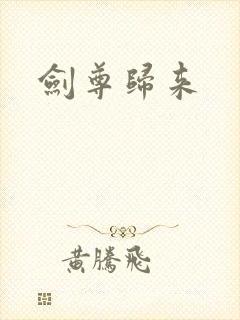 劍尊歸来
黃騰飛